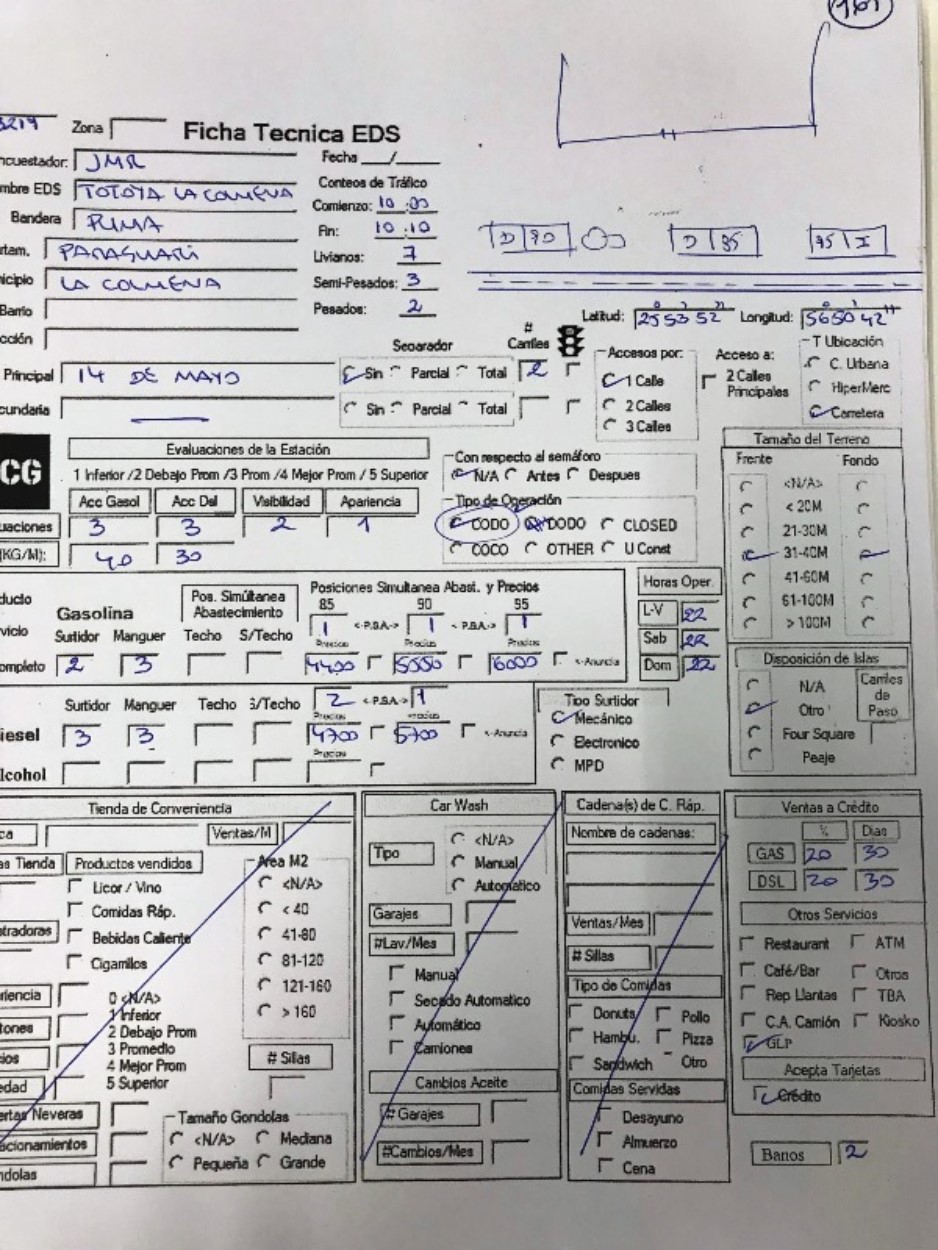 161
3219 Zona Ficha Tecnica EDS
ncuestador: JMR Fecha / /
mbre EDS TOTOTA LA COLMENA Conteos de Tráfico
Bandera PUMA Comienzo: 10:00
rtam. PARAGUARI Fin: 10:10
Livianos: 7
nicipio LA COLMENA Semi-Pesados: 3
Barrio Pesados: 2
cción
D 90 D 95 95 I
Latitud: 25 53 52 Longitud: 56 50 42
Principal 14 DE MAYO Separador Sin Parcial Total # Carriles 2
cundaria Sin Parcial Total
Accesos por: 1 Calle 2 Calles 3 Calles
Acceso a: 2 Calles Principales
T Ubicación C. Urbana HiperMerc Carretera
CG
Evaluaciones de la Estación
1 Inferior /2 Debajo Prom /3 Prom /4 Mejor Prom / 5 Superior
Acc Gasol Acc Dsl Visibilidad Apariencia
uaciones 3 3 2 1
(KG/M): 40 30
Con respecto al semáforo
N/A Antes Despues
Tipo de Operación
CODO DODO CLOSED
COCO OTHER U Const
Tamaño del Terreno
Frente Fondo
<N/A>
< 20M
21-30M
31-40M
41-60M
61-100M
> 100M
ducto
rvicio
Gasolina Pos. Simúltinea Abastecimiento
Posiciones Simultanea Abast. y Precios
85 90 95
1 <-P.S.A-> 1 <-P.S.A.-> 1
Surtidor Manguer Techo S/Techo Precios Precios Precios
ompleto 2 3 4400 5550 6000 <-Anuncia
Horas Oper.
L-V 22
Sab 22
Dom 22
Surtidor Manguer Techo S/Techo 2 <-P.S.A.-> 1
Precios Precios
iesel 3 3 4700 5700 <-Anuncia
Precios
lcohol
Tipo Surtidor
Mecánico
Electronico
MPD
Disposición de Islas
N/A
Otro
Four Square
Peaje
Carriles de Paso
Tienda de Conveniencia
ca Ventas/M
as Tienda Productos vendidos
Licor / Vino
Comidas Ráp.
stradoras Bebidas Caliente
Cigarrillos
Area M2
<N/A>
< 40
41-80
81-120
121-160
> 160
riencia 0 <N/A>
1 Inferior
tones 2 Debajo Prom
cios 3 Promedio
4 Mejor Prom
edad 5 Superior
# Sillas
ertas Neveras
acionamientos
ndolas
Tamaño Gondolas
<N/A> Mediana
Pequeña Grande
Car Wash
Tipo
<N/A>
Manual
Automatico
Garajes
#Lav/Mes
Manual
Secado Automatico
Automático
Camiones
Cambios Aceite
# Garajes
#Cambios/Mes
Cadena(s) de C. Ráp.
Nombre de cadenas:
Ventas/Mes
# Sillas
Tipo de Comidas
Donuts Pollo
Hambu. Pizza
Sandwich Otro
Comidas Servidas
Desayuno
Almuerzo
Cena
Ventas a Crédito
% Dias
GAS 20 30
DSL 20 30
Otros Servicios
Restaurant ATM
Café/Bar Otros
Rep Llantas TBA
C.A. Camión Kiosko
GLP
Acepta Tarjetas
Crédito
Banos 2